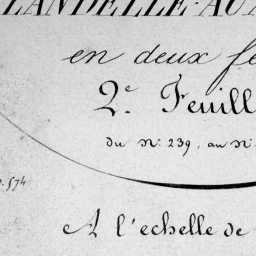 LANDELLE AU
en deux fe
2.e Feuill
du N.o 239, au N.o
574
A l'échelle de